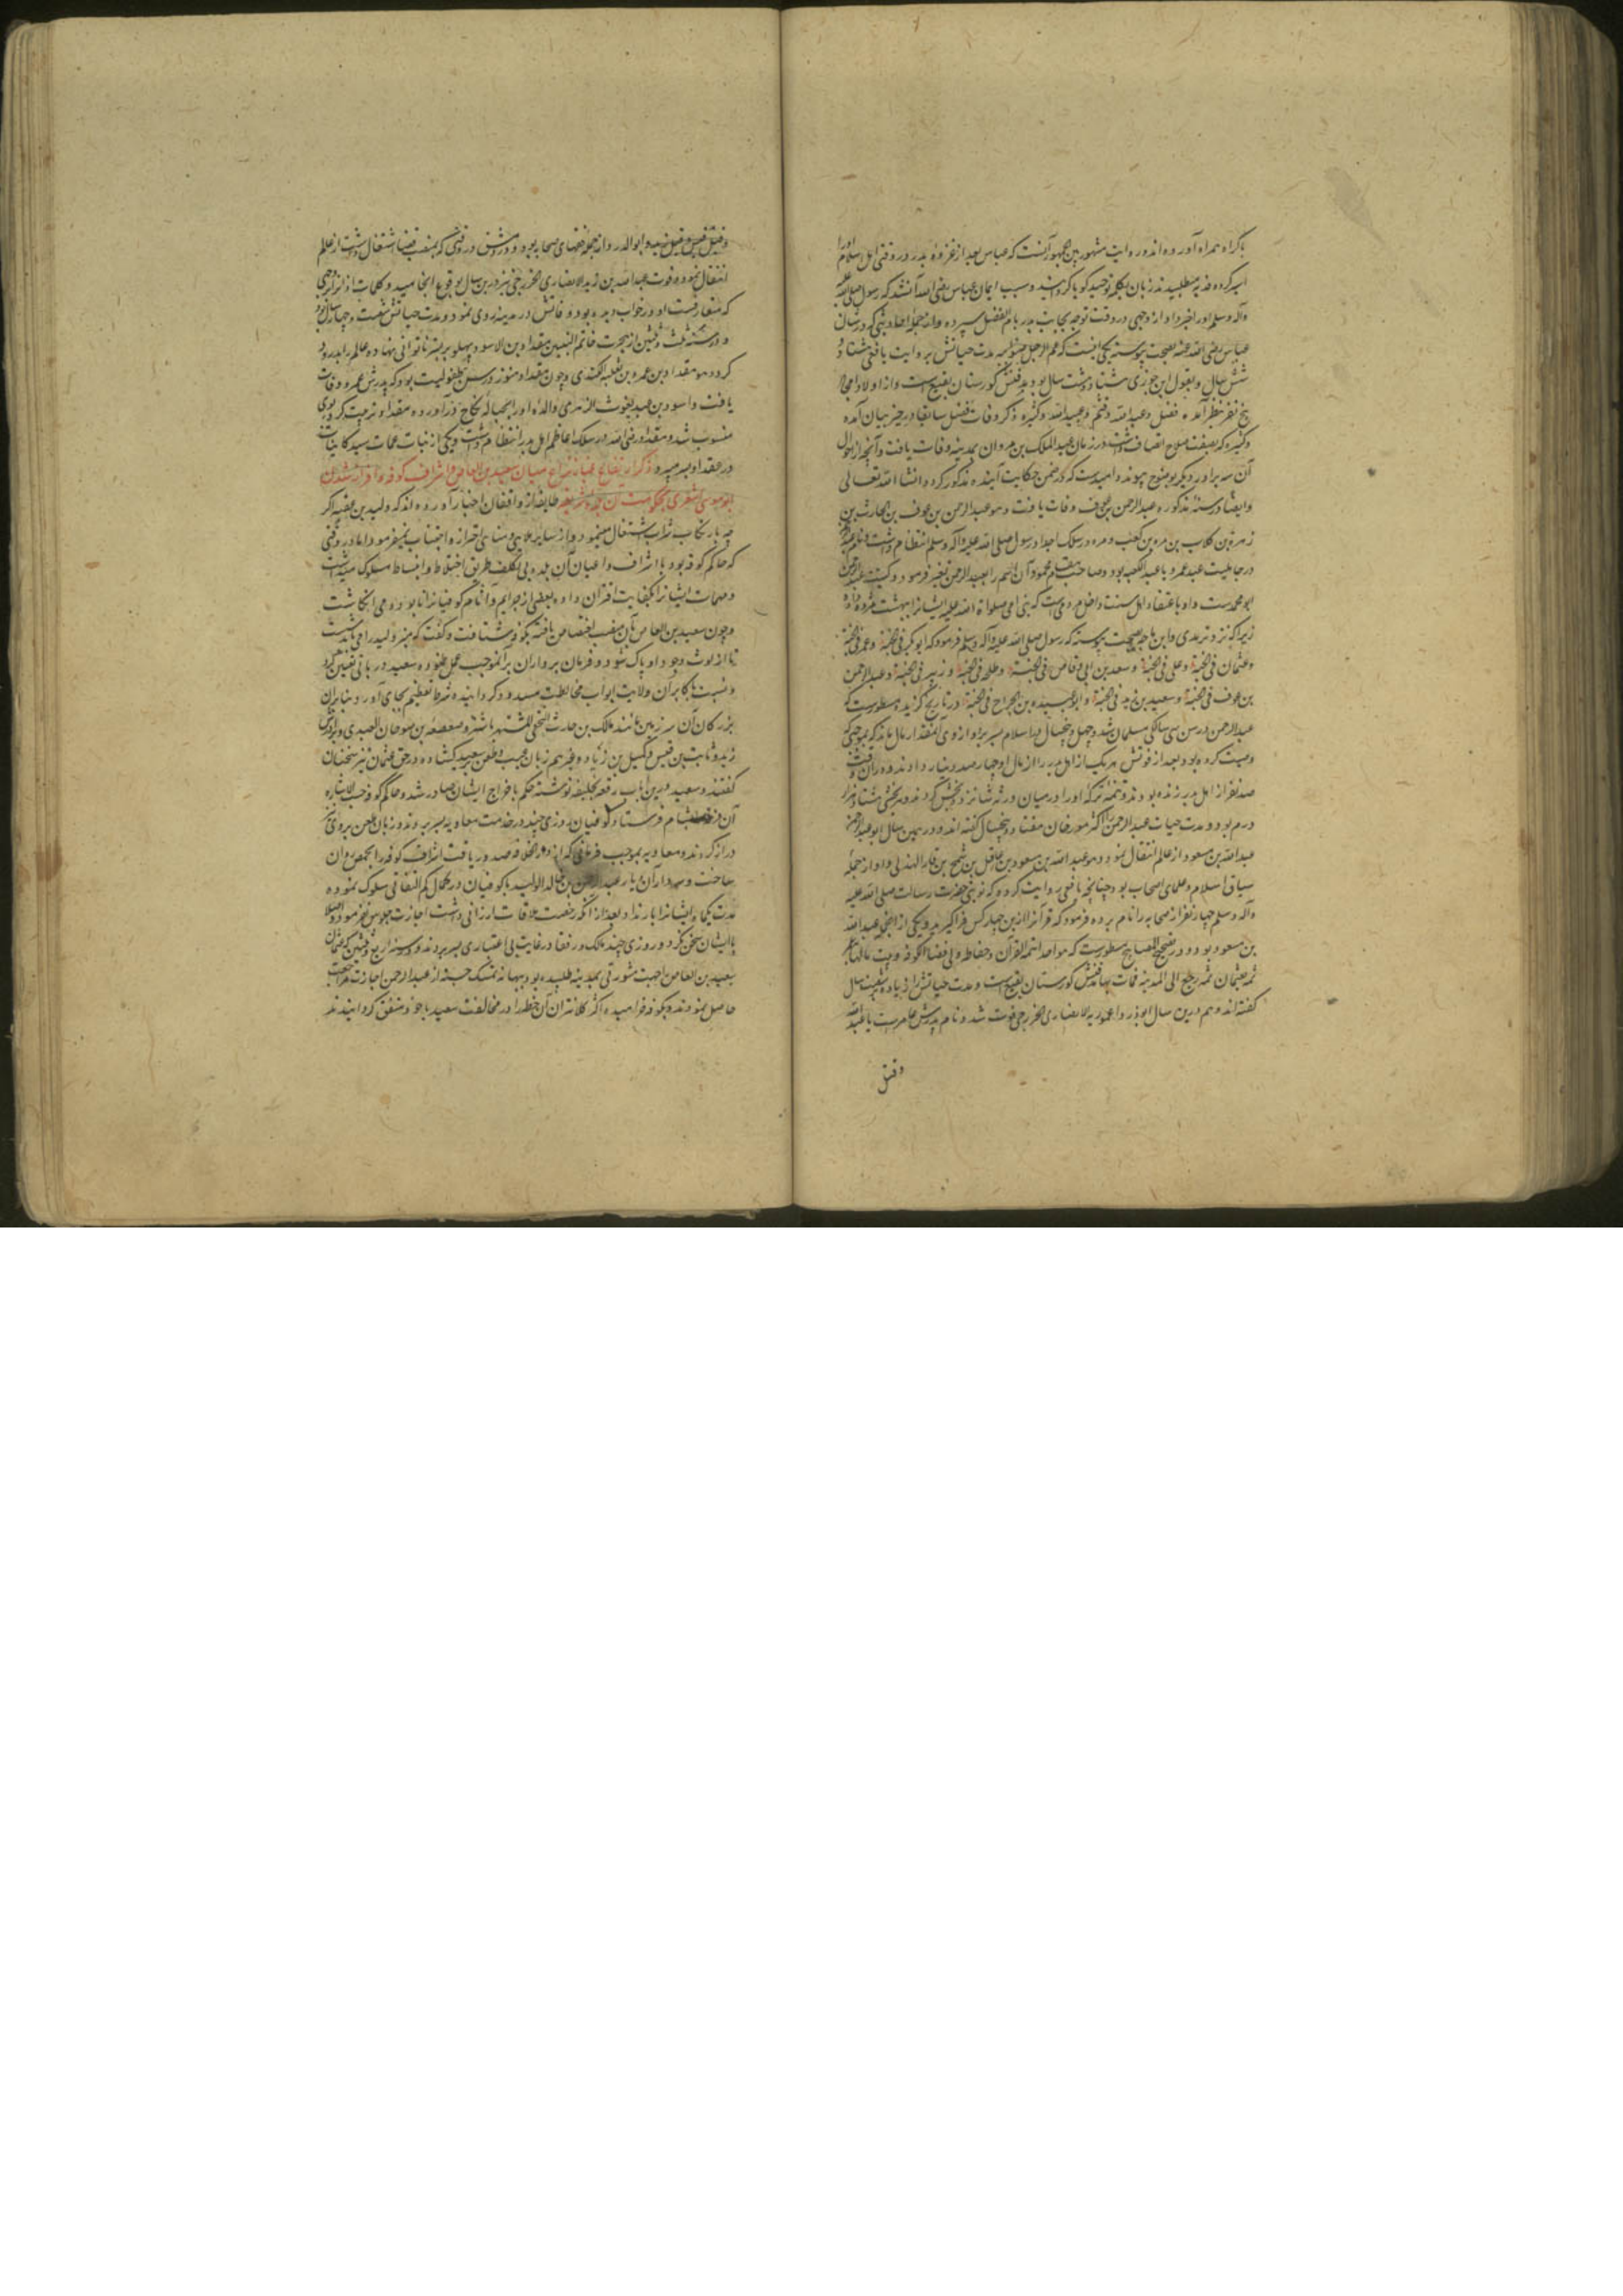 باکراه همراه آورده اند و روایت مشهور بین الجمهور آنست که عباس بعد از غزوه بدر در وقتی اهل اسلام او را
اسیر کرده فدیه میطلبیدند زبان بکلمه توحید گویا گردانید و سبب ایمان عباس رضی الله آن شد که رسول صلی الله علیه
وآله وسلم او را خبر داد از وجهی در وقت توجه بجانب بدر بام الفضل سپرده و از جمله احادیثی که در شان
عباس رضی الله عنه بصحت پیوسته یکی اینست که عم الرجل صنو ابیه مدت حیاتش بروایت یافعی هشتاد و
شش سال و بقول ابن جوزی هشتاد و هشت سال بود مدفنش گورستان بقیع است و از اولاد امجاد
پنج نفر بنظر آمده فضل و عبد الله و قثم و عبید الله و کثیره ذکر وفات فضل سابقا در حیز بیان آمده
و کثیره که بصفت صلاح اتصاف داشت در زمان عبد الملک بن مروان بمدینه وفات یافت و آنچه از احوال
آن سه برادر دیگر بوضوح پیوندد امیدست که در ضمن حکایت آینده مذکور گردد انشا الله تعالی
وایضا در سنه مذکوره عبد الرحمن بن عوف وفات یافت و هو عبد الرحمن بن عوف بن الحارث بن
زهره بن کلاب بن مره بن کعب و مره در سلک اجداد رسول صلی الله علیه وآله وسلم انتظام داشت و نام عبد الرحمن
در جاهلیت عبد عمرو یا عبد الکعبه بود و صاحب مقام محمود آن اسم را بعبد الرحمن تغییر فرمود و کنیت عبد الرحمن
ابو محمدست و او باعتقاد اهل سنت داخل ده است که نبی امی صلواة الله علیه ایشانرا ببهشت مژده داده
زیرا که نزد ترمدی و ابن ماجه بصحت پیوسته که رسول صلی الله علیه وآله وسلم فرمود که ابو بکر فی الجنة و عمر فی الجنة
و عثمان فی الجنة و علی فی الجنة و سعد بن ابی وقاص فی الجنة و طلحه فی الجنة و زبیر فی الجنة و عبد الرحمن
بن عوف فی الجنة و سعید بن زید فی الجنة و ابو عبیده بن الجراح فی الجنة در تاریخ گزیده مسطورست که
عبد الرحمن در سن سی سالگی مسلمان شد و چهل و پنجسال در اسلام بسر برد و از وی آنمقدار مال ماند که بموجبی که
وصیت کرده بود بعد از فوتش هر یک از اهل بدر را از مال او چهار صد دینار دادند و در آن وقت
صد نفر از اهل بدر زنده بودند و تتمه ترکه او را در میان ورثه شانزده بخش کردند و هر بخشی هشتاد هزار
درم بود و مدت حیات عبد الرحمن را اکثر مورخان هفتاد و پنجسال گفته اند و در همین سال ابو عبد الرحمن
عبد الله بن مسعود از عالم انتقال نمود و هو عبد الله بن مسعود بن غافل بن شمخ بن فار الهذلی و او از جمله
سباق اسلام و علمای اصحاب بود چنانچه یافعی روایت کرده که نوبتی حضرت رسالت صلی الله علیه
وآله وسلم چهار نفر از صحابه را نام برده فرمود که قرآنرا ازین چهار کس فراگیرید و یکی از آنجمله عبد الله
بن مسعود بود و در تصحیح المصابیح مسطورست که هو احد ائمة القرآن و حفاظه ولی قضا الکوفه و بیت مالها لعمر
ثم بعثمان ثم رجع الی المدینه فمات بها مدفنش گورستان بقیع است و مدت حیاتش از زیاده شصت سال
گفته اند و هم درین سال ابو الدردا عویمر الانصاری الخزرجی فوت شد و نام پدرش عامرست یا عبد الله
وقیل
وقیل قیس وقیل زید و ابو الدردا از جمله فقهای صحابه بود و در دمشق در وقتی که بمنصب قضا اشتغال داشت از عالم
انتقال نمود و فوت عبد الله بن زید الانصاری الخزرجی نیز درین سال بوقوع انجامید و کلمات اذانرا بوجهی
که متعارفست او در خواب دیده بود وفاتش در مدینه روی نمود و مدت حیاتش شصت و چهار سال بود
و در سنه ثلث و ثلثین از هجرت خاتم النبیین مقداد بن الاسود پهلو بر بستر ناتوانی نهاده عالم را بدرود
کرد و هو مقداد بن عمرو بن ثعلبه الکندی و چون مقداد هنوز در سن طفولیت بود که پدرش عمرو وفات
یافت و اسود بن عبد یغوث الزهری والده او را بحباله نکاح درآورده مقداد تربیت کرد بوی
منسوب شد و مقداد رضی الله در سلک اعاظم اهل بدر انتظام داشت و یکی از بنات عمات سید کاینات
در عقد او بسر میبرد ذکر ارتفاع غبار نزاع میان سعید بن العاص و اشراف کوفه و قرار شدن
ابو موسی اشعری بحکومت آن بلده شریفه طایفه از واقفان اخبار آورده اند که ولید بن عقبه اگر
چه بارتکاب شراب اشتغال مینمود و از سایر ملاهی و مناهی احتراز و اجتناب نمیفرمود اما در وقتی
که حاکم کوفه بود با اشراف و اعیان آن بلده بی تکلف طریق اختلاط و انبساط مسلوک میداشت
و مهمات ایشانرا بکفایت اقران داده بعضی از جرایم و آثام کوفیانرا نابوده می انگاشت
و چون سعید بن العاص بآن منصب اختصاص یافته بکوفه شتافت و گفت که منبر ولید را می باید شست
تا از لوث وجود او پاک شود و فرمان برداران برآنموجب عمل نموده و سعید دربانی تعیین کرد
و نسبت باکابر آن ولایت ابواب مخالطت مسدود گردانیده شرط تعظیم بجای آورد بنابران
بزرگان آن سرزمین مانند مالک بن حارث النخعی المشتهر باشتر و صعصعه بن صوحان العبدی و برادرش
زید و ثابت بن قیس و کمیل بن زیاد و غیرهم زبان بعیب و طعن سعید گشاده در حق عثمان نیز سخنان
گفتند و سعید درین باب رقعه بخلیفه نوشته حکم باخراج ایشان صادر شد و حاکم کوفه حسب الاشاره
آن بشام فرستاد کوفیان روزی چند در خدمت معاویه بسر بردند و زبان طعن بروی نیز
دراز کردند و معاویه بموجب فرمانی که از دار الخلافه صدور یافت اشراف کوفه را بحمص روان
ساخت و سردار آن دیار عبد الرحمن بن خالد الولید با کوفیان در کمال کم التفاتی سلوک نموده
مدت یکماه ایشانرا بار نداد بعد از آنکه رخصت ملاقات ارزانی داشت اجازت جلوس نفرمود و اصلا
با ایشان سخن نکرد و روزی چند مالک و رفقا در غایت بی اعتباری بسر بردند و در سنه اربع و ثلثین که عثمان
سعید بن العاص را جهت مشورتی بمدینه طلبیده بود بهانه تمسک جسته از عبد الرحمن اجازت مراجعت
حاصل نمودند و بکوفه خرامیده اکثر کلانتران آن خطه را در مخالفت سعید با خود متفق گردانیدند